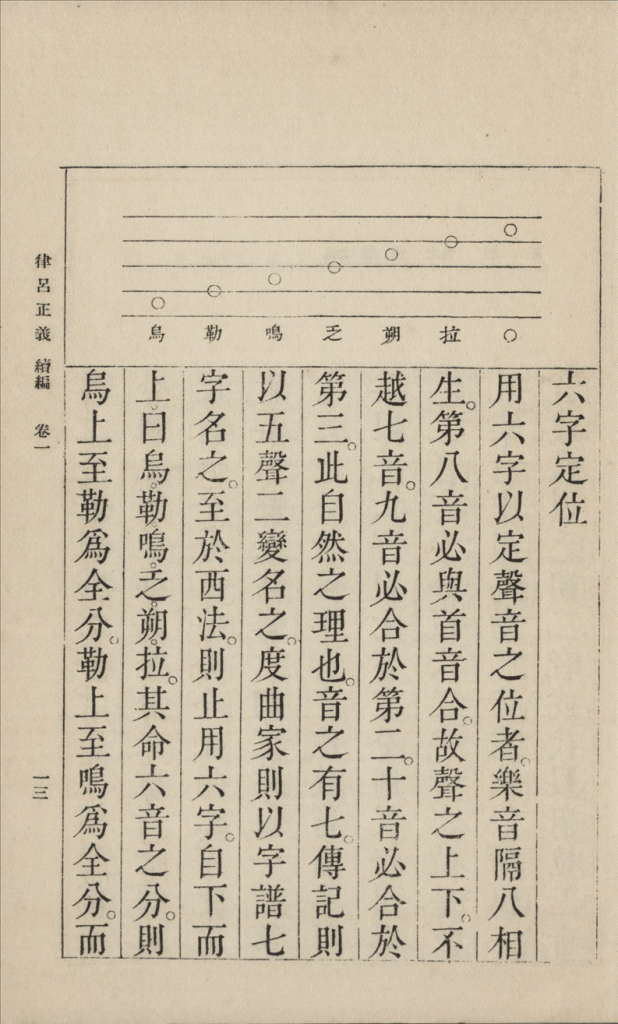 ○拉朔乏鳴勒烏
六字定位
用六字以定聲音之位者。樂音隔八相
生。第八音必與首音合。故聲之上下。不
越七音。九音必合於第二。十音必合於
第三。此自然之理也。音之有七。傳記則
以五聲二變名之。度曲家則以字譜七
字名之。至於西法。則止用六字。自下而
上。曰烏。勒。鳴。乏。朔。拉。其命六音之分。則
烏上至勒爲全分。勒上至鳴爲全分。而
律呂正義 續編 卷一
一三